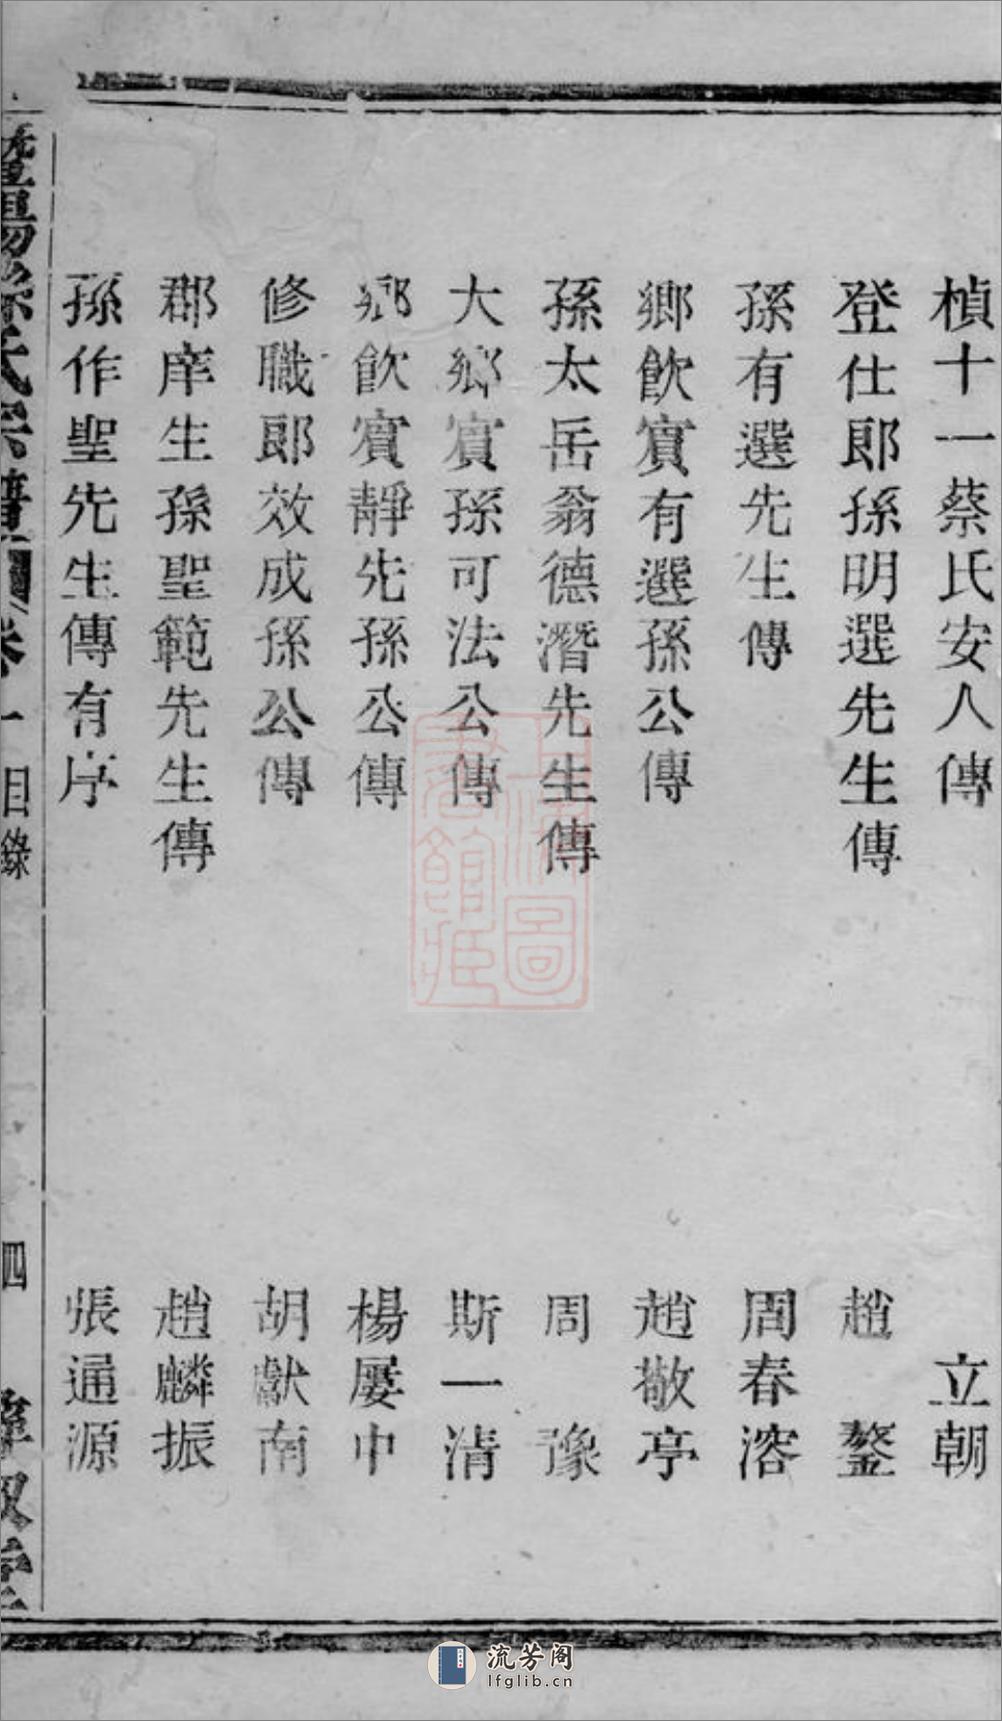 楨十一蔡氏安人傳 立朝
登仕郎孫明選先生傳 趙鏊
孫有選先生傳 周春溶
鄉飲賓有選孫公傳 趙敬亭
孫太岳翁德潛先生傳 周豫
大鄉賓孫可法公傳 斯一清
鄉飲賓靜先孫公傳 楊屢中
修職郎效成孫公傳 胡獻南
郡庠生孫聖範先生傳 趙麟振
孫作聖先生傳有序 張通源
暨陽孫氏宗譜 卷一 目錄 四
上海圖書館藏
流芳阁
lfglib.cn